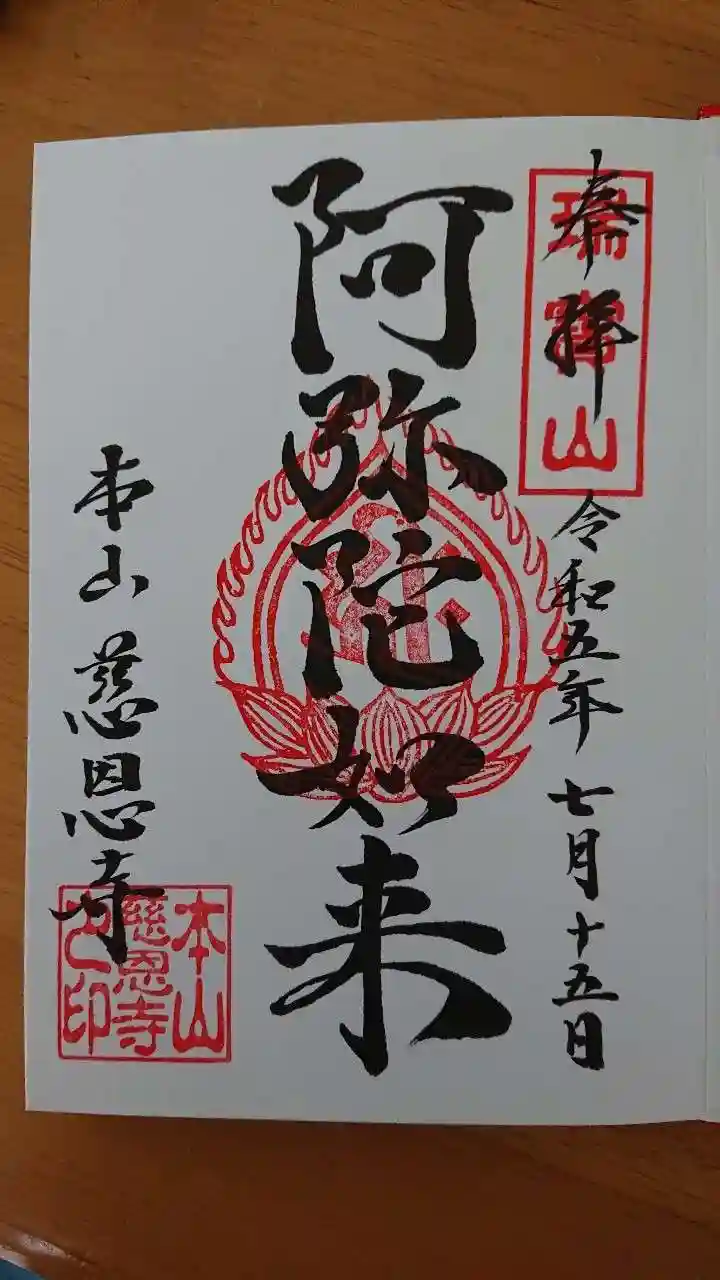 奉拝
瑞寳山
令和五年 七月十五日
阿弥陀如来
本山 慈恩寺
本山
慈恩寺
之印